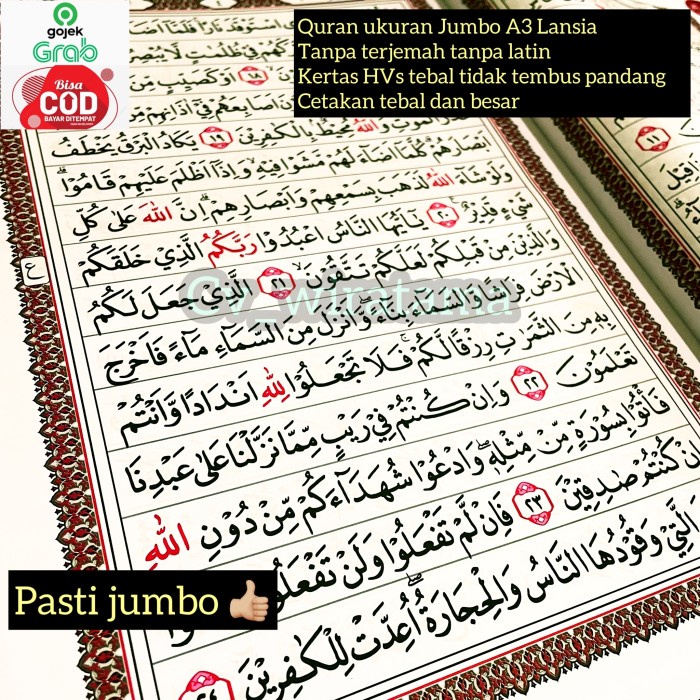 gojek
Grab
Bisa
COD
BAYAR DITEMPAT
Quran ukuran Jumbo A3 Lansia
Tanpa terjemah tanpa latin
Kertas HVs tebal tidak tembus pandang
Cetakan tebal dan besar
مُحِيْطٌ بِالْكٰفِرِيْنَ ١٩ يَكَادُ الْبَرْقُ يَخْطَفُ
اَبْصَارَهُمْ كُلَّمَا اَضَاۤءَ لَهُمْ مَّشَوْا فِيْهِ وَاِذَا اَظْلَمَ عَلَيْهِمْ قَامُوْا
وَلَوْ شَاۤءَ اللّٰهُ لَذَهَبَ بِسَمْعِهِمْ وَاَبْصَارِهِمْ اِنَّ اللّٰهَ عَلٰى كُلِّ
شَيْءٍ قَدِيْرٌ ٢٠ يٰٓاَيُّهَا النَّاسُ اعْبُدُوْا رَبَّكُمُ الَّذِيْ خَلَقَكُمْ
وَالَّذِيْنَ مِنْ قَبْلِكُمْ لَعَلَّكُمْ تَتَّقُوْنَ ٢١ الَّذِيْ جَعَلَ لَكُمُ
الْاَرْضَ فِرَاشًا وَّالسَّمَاۤءَ بِنَاۤءً وَّاَنْزَلَ مِنَ السَّمَاۤءِ مَاۤءً فَاَخْرَجَ
بِهٖ مِنَ الثَّمَرٰتِ رِزْقًا لَّكُمْ فَلَا تَجْعَلُوْا لِلّٰهِ اَنْدَادًا وَّاَنْتُمْ
تَعْلَمُوْنَ ٢٢ وَاِنْ كُنْتُمْ فِيْ رَيْبٍ مِّمَّا نَزَّلْنَا عَلٰى عَبْدِنَا
فَأْتُوْا بِسُوْرَةٍ مِّنْ مِّثْلِهٖ وَادْعُوْا شُهَدَاۤءَكُمْ مِّنْ دُوْنِ اللّٰهِ
اِنْ كُنْتُمْ صٰدِقِيْنَ ٢٣ فَاِنْ لَّمْ تَفْعَلُوْا وَلَنْ تَفْعَلُوْا
الَّتِيْ وَقُوْدُهَا النَّاسُ وَالْحِجَارَةُ اُعِدَّتْ لِلْكٰفِرِيْنَ ٢٤
ع
cv_wiratama
Pasti jumbo